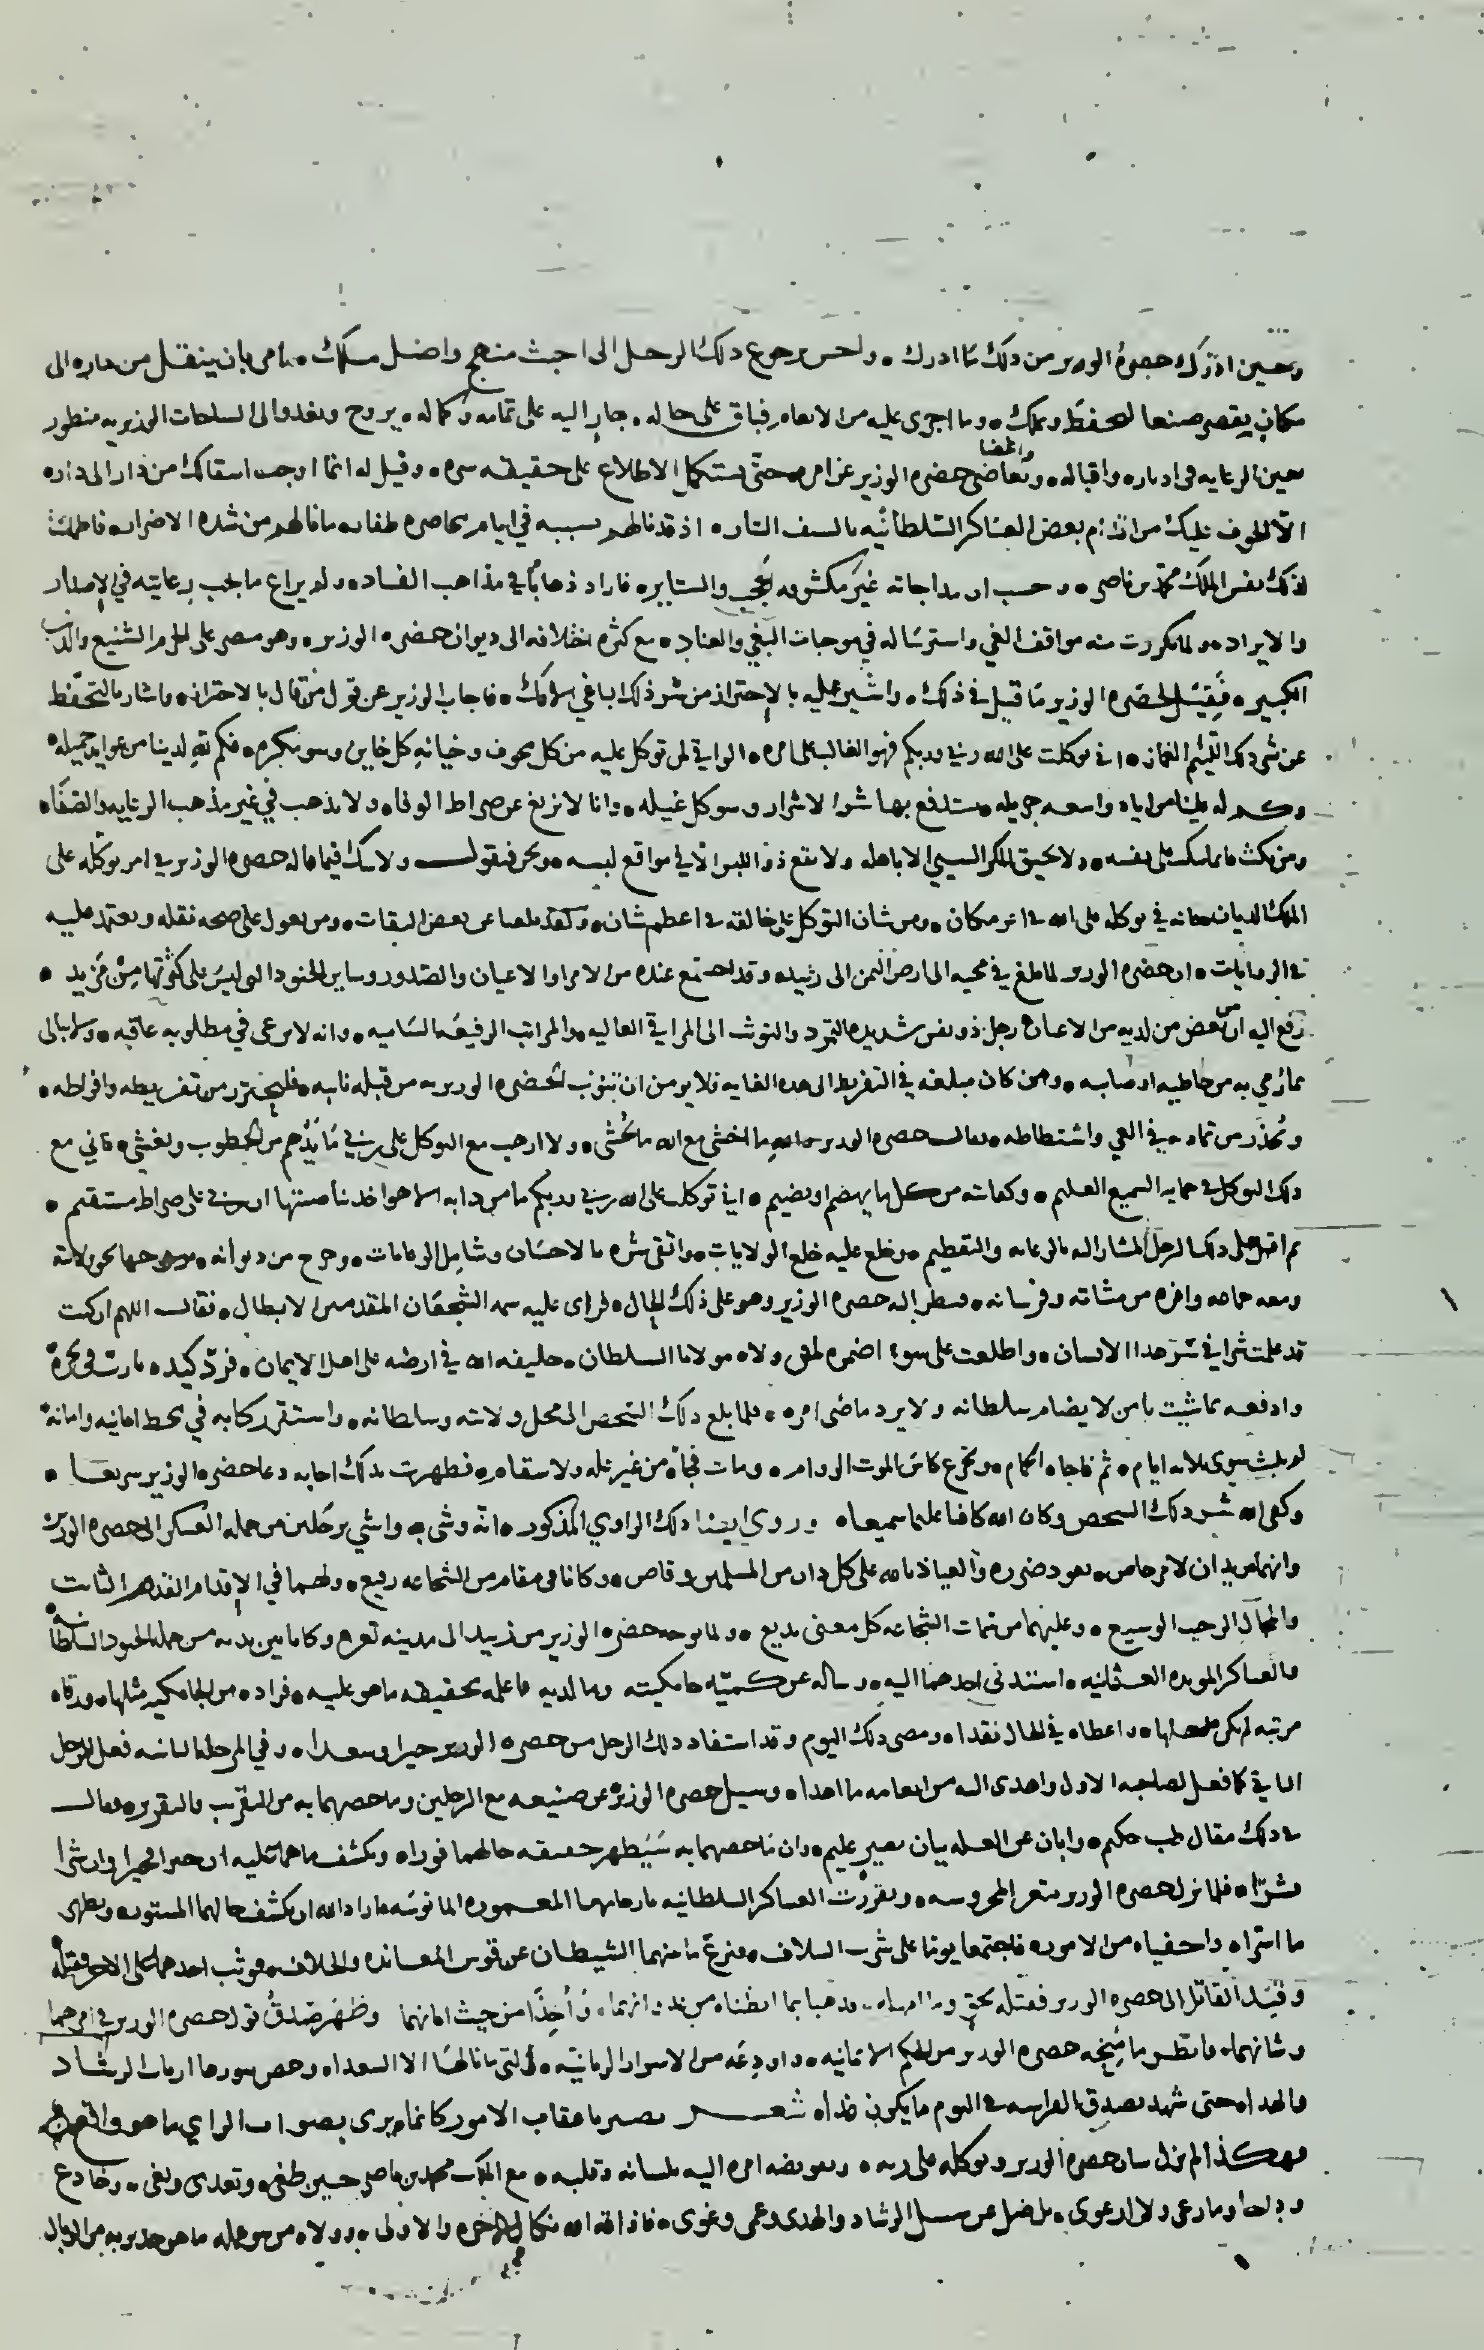 وحين ادرك حضرة الوزير من ذلك ما ادرك ٥ واحس برجوع ذلك الرجل الى اخبث منهج واضل مسلك ٥ امر بان ينتقل من داره الى
مكان بقصر صنعا لتحفظ وتملك ٥ وما اجرى عليه من الانعام فباق على حاله ٥ جار اليه على تمامه وكماله ٥ يروح ويغدو الى الساحات الوزيريه منظور
بعين الرعايه في ادباره واقباله ٥ وتغاضى حضرة الوزير عن امره حتى يستكمل الاطلاع على حقيقه سره ٥ وقيل له انما اوجب انتقالك من دار الى داره
الا الخوف عليك من اقدام بعض العساكر السلطانيه بالسيف التار ٥ اذ قد نالهم بسببه في ايام محاصره ظفار ما نالهم من شده الاضرار فاطمئنت
لذلك نفس الملك محمد بن ناصر ٥ وحسب ان مداجاته غير مكشوفه الحجب والستاير ٥ فازاد ذهابا في مذاهب الفساد ٥ ولم يراع ما يجب رعايته في الاصدار
والايراد ٥ ولما تكررت منه مواقف الغي واسترساله في موجبات البغي والعناد ٥ مع كثره اختلافه الى ديوان حضره الوزير ٥ وهو مصر على الجرم الشنيع والذنب
الكبير ٥ فقيل لحضره الوزير ما قيل في ذلك ٥ واشير عليه بالاحتراز من شر ذلك الباغي الافاك ٥ فاجاب الوزير عن قول من قال بالاحتراز ٥ واشار بالتحفظ
عن شر ذلك اللئيم الغماز ٥ اني توكلت على الله ربي وربكم فهو الغالب على امره ٥ الواقي لمن توكل عليه من كل مخوف وخيانه كل خاين وسو مكره ٥ فكم لله لدينا من عوايد جميله
وكم له علينا من اياد واسعه جزيله ٥ ستدفع بها شر الاشرار وسو كل غيله ٥ وانا لا نزيغ عن صراط الوفاء ٥ ولا نذهب في غير مذهب الرعايه والصفاء
ومن نكث فانما ينكث على نفسه ٥ ولا يحيق المكر السيئ الا باهله ولا يقع ذو اللبس الا في مواقع لبسه ٥ ونحن نقول ولا شك فيما قاله حضره الوزير في امر توكله على
الملك الديان فانه في توكله على الله في اعز مكان ٥ ومن شان التوكل على خالقه في اعظم شان ٥ ولقد بلغنا عن بعض الثقات ٥ ومن يعول على صحه نقله ويعتمد عليه
في الروايات ٥ ان حضره الوزير لما بلغ في مجيه الى ارض اليمن الى زبيد ٥ وقد اجتمع عنده من الامرا والاعيان والصدور وساير الجنود التي ليس على كثرتها من مزيد ٥
رفع اليه ان من بعض من لديه من الاعيان رجل ذو نفس شديده التمرد والتوثب الى المراقي العاليه والمراتب الرفيعه الساميه ٥ وانه لا يرعى في مطلوبه عاقبه ٥ ولا يبالي
بما رمي به من خاطيه او صايبه ٥ ومن كان مبلغه في التفريط الى هذه الغايه فلا يومن ان تنوب لحضره الوزيريه من قبله نايبه ٥ فليحترز من تفريطه وافراطه ٥
ويحذر من تماديه في الغي واشتطاطه ٥ فقال حضره الوزير والله ما اخشى مع الله ما يخشى ٥ ولا ارهب مع التوكل على ربي ما يدهم من الخطوب ويغشى ٥ فاني مع
ذلك التوكل في حمايه السميع العليم ٥ وكفايته من كل ما يهضم او يضيم ٥ اني توكلت على الله ربي وربكم ما من دابه الا هو اخذ بناصيتها ان ربي على صراط مستقيم ٥
ثم اقبل على ذلك الرجل المشار اليه بالرعايه والتعظيم ٥ وخلع عليه خلع الولايات ٥ واتقى شره بالاحسان وشامل الرعايات ٥ وخرج من ديوانه ٥ متوجها نحو ولايته
ومعه جماعه وافره من مشاته وفرسانه ٥ فنظر اليه حضره الوزير وهو على ذلك الحال ٥ فراى عليه سمه الشجعان المقدمين الابطال ٥ فقال اللهم ان كنت
قد علمت شرا في سر هذا الانسان ٥ واطلعت على سوء اضمره لمن ولاه مولانا السلطان ٥ خليفه الله في ارضه على اهل الايمان ٥ فرد كيده يا رب في نحره
وادفعه بما شيت يا من لا يضام سلطانه ولا يرد ماضي امره ٥ فلما بلغ ذلك الشخص الى محل ولايته وسلطانه ٥ واستقر ركابه في محط امانيه وامانه
لم يلبث سوى ثلاثه ايام ٥ ثم فاجاه الحمام ٥ وتجرع كاس الموت الزوام ٥ ومات فجاة من غير عله ولا سقام ٥ فظهرت بذلك اجابه دعا حضره الوزير سريعا ٥
وكفى الله شر ذلك الشخص وكان الله كافيا عليما سميعا ٥ وروي ايضا ذلك الراوي المذكور ٥ انه وشى به واشي برجلين من جمله العسكر الى حضره الوزير
وانهما يريدان لامر خاص ٥ يعود ضرره والعياذ بالله على كل دان من المسلمين وقاص ٥ وكانا في مقام من الشجاعه رفيع ٥ ولهما في الاقدام القدم الثابت
والمجال الرحيب الوسيع ٥ وعليهما من سمات الشجاعه كل معنى بديع ٥ ولما توجه حضره الوزير من زبيد الى مدينه تعز ٥ وكانا بين يديه من جمله الجنود السلطانيه
والعساكر المويده العثمانيه ٥ استدنى احدهما اليه ٥ وساله عن كميه جامكيته وما لديه فاعلمه بحقيقه ما هو عليه ٥ فزاده من الجامكيه مثلها ٥ ورقاه
مرتبه لم يكن محلها ٥ واعطاه في الحال نقدا ٥ ومضى ذلك اليوم وقد استفاد ذلك الرجل من حضره الوزير خيرا وسعدا ٥ وفي المرحله الثانيه فعل بالرجل
الثاني كما فعل لصاحبه الاول واهدى اليه من انعامه ما اهداه ٥ وسيل حضره الوزير عن صنيعه مع الرجلين وما خصهما به من التقرب والتقرير ٥ فقال
في ذلك مقال طب حكيم ٥ وابان عن العله بيان بصير عليم ٥ وان ما خصهما به سيظهر حقيقه حالهما فورا ٥ ويكشف ما هما عليه ان خيرا فخيرا وان شرا
فشرا ٥ فلما نزل حضره الوزير بتعز المحروسه ٥ وتفرقت العساكر السلطانيه بارجايها المعموره المانوسه ٥ اراد الله ان يكشف حالهما المستور ٥ ويظهر
ما اسراه واخفياه من الامور ٥ فاجتمعا يوما على شرب السلاف ٥ فنزغ ما بينهما الشيطان عن قوس المعانده والخلاف ٥ فوثب احدهما على الاخر فقتله
وقيد القاتل الى حضره الوزير فقتله بحق وما امهله ٥ فذهبا بما ابطناه من ٥ واخذا من حيث امانهما وظهر صدق قول حضره الوزير في امرهما
وشانهما ٥ فانظر ما منحه حضره الوزير من الحكم الايمانيه ٥ واودعه من الاسرار الربانيه ٥ التي ما نالها الا السعداء ٥ وخص بنورها ارباب الرشاد
والهدا ٥ حتى شهد بصدق الفراسه في اليوم ما يكون غدا ٥ شعر بصير باعقاب الامور كانما ٥ يرى بصواب الراي ما هو واقع
وهكذا لم يزل شان حضره الوزير وتوكله على ربه ٥ وتفويضه امره اليه بلسانه وقلبه ٥ مع الملك محمد بن ناصر حين طغى ٥ وتعدى وبغى ٥ وخادع
وما رعى ولا ارعوى ٥ بل ضل عن سبيل الرشاد والهدى وعمى وغوى ٥ فاذاقه الله نكال الاخره والاولى ٥ وولاه من سو عمله ما هو جدير به من الوبال